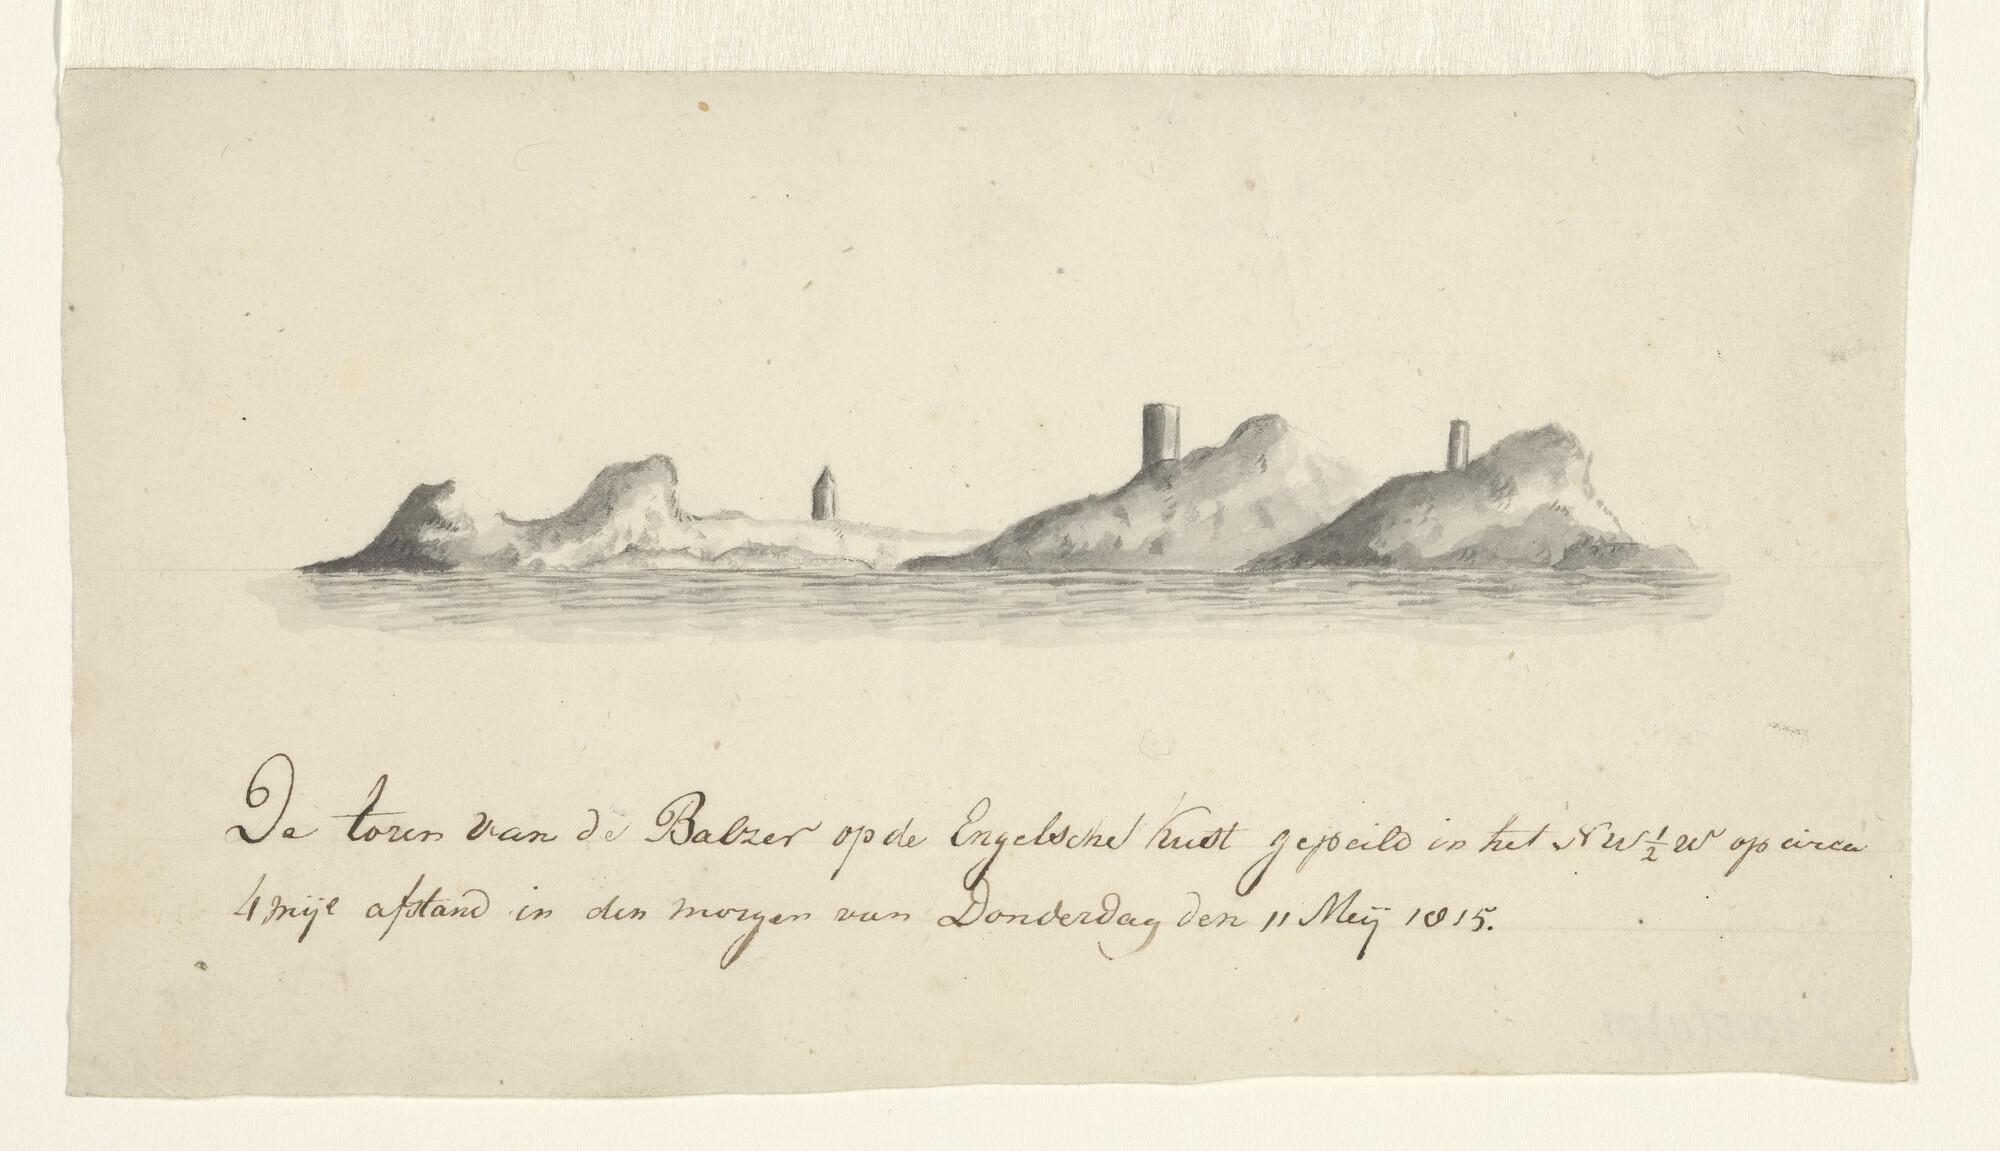 De toren van de Balzer op de Engelsche Kust gepeild in het NW ½ W op circa
4 mijl afstand in den morgen van Donderdag den 11 Meij 1815.